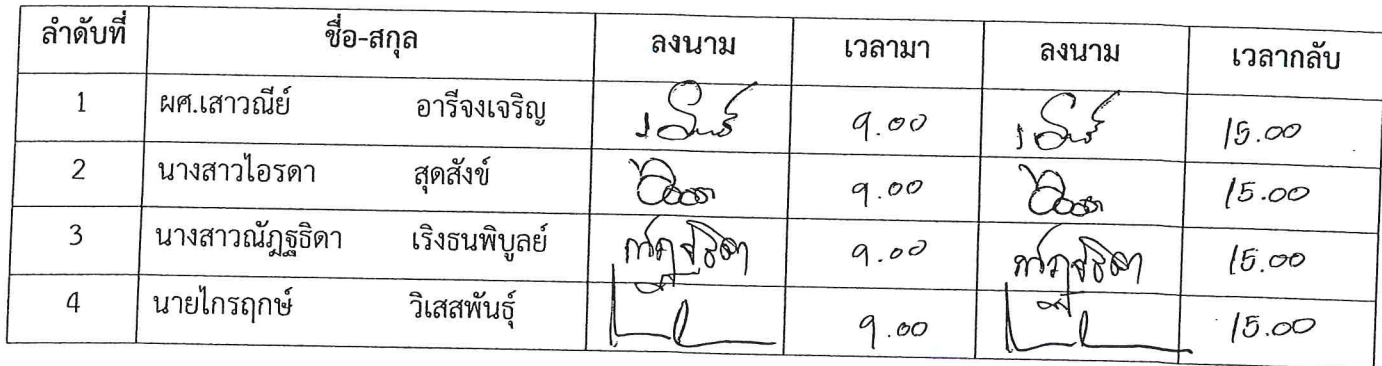 ลำดับที่ ชื่อ-สกุล ลงนาม เวลามา ลงนาม เวลากลับ
1 ผศ.เสาวณีย์ อารีจงเจริญ 9.00 15.00
2 นางสาวไอรดา สุดสังข์ 9.00 15.00
3 นางสาวณัฏฐธิดา เริงธนพิบูลย์ ณัฏฐธิดา 9.00 ณัฏฐธิดา 15.00
4 นายไกรฤกษ์ วิเสสพันธุ์ 9.00 15.00